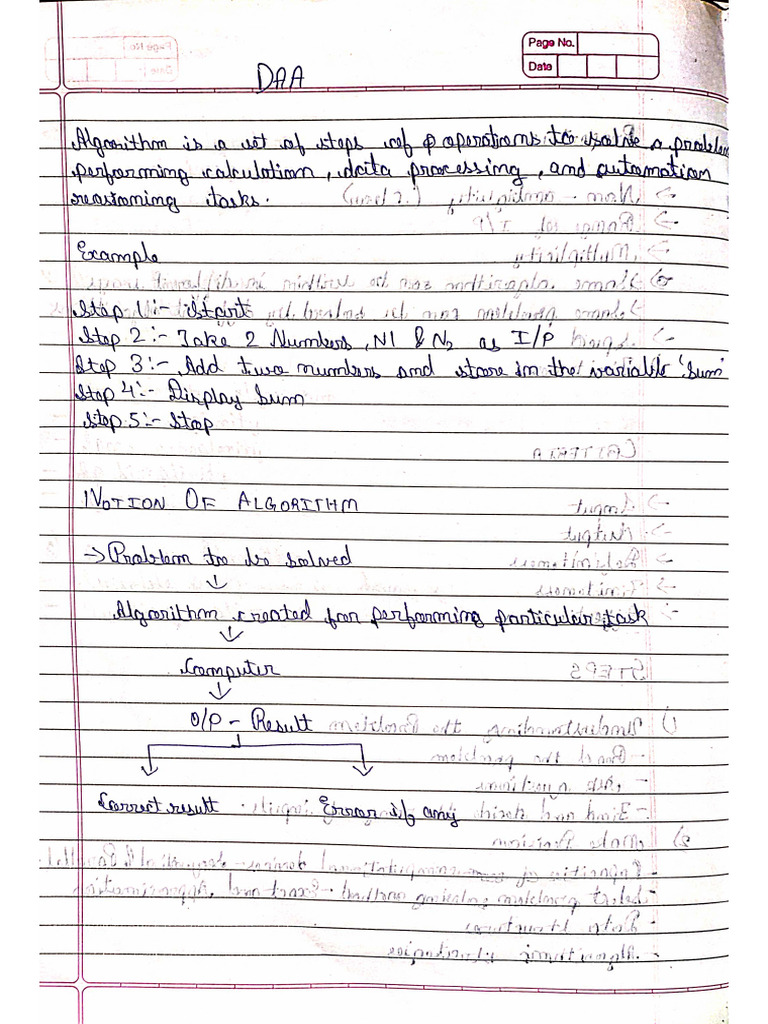 Page No.
Date
DAA
Algorithm is a set of steps of operations to solve a problem
performing calculation, data processing, and automation
reasoning tasks.
Example
Step 1:- Start
Step 2:- Take 2 Numbers, N1 & N2 as I/P
Step 3:- Add two numbers and store in the variable 'Sum'
Step 4:- Display Sum
Step 5:- Stop
NOTION OF ALGORITHM
→ Problem to be solved
↓
Algorithm created for performing particular task
↓
Computer
↓
O/P - Result
Correct result Error if any